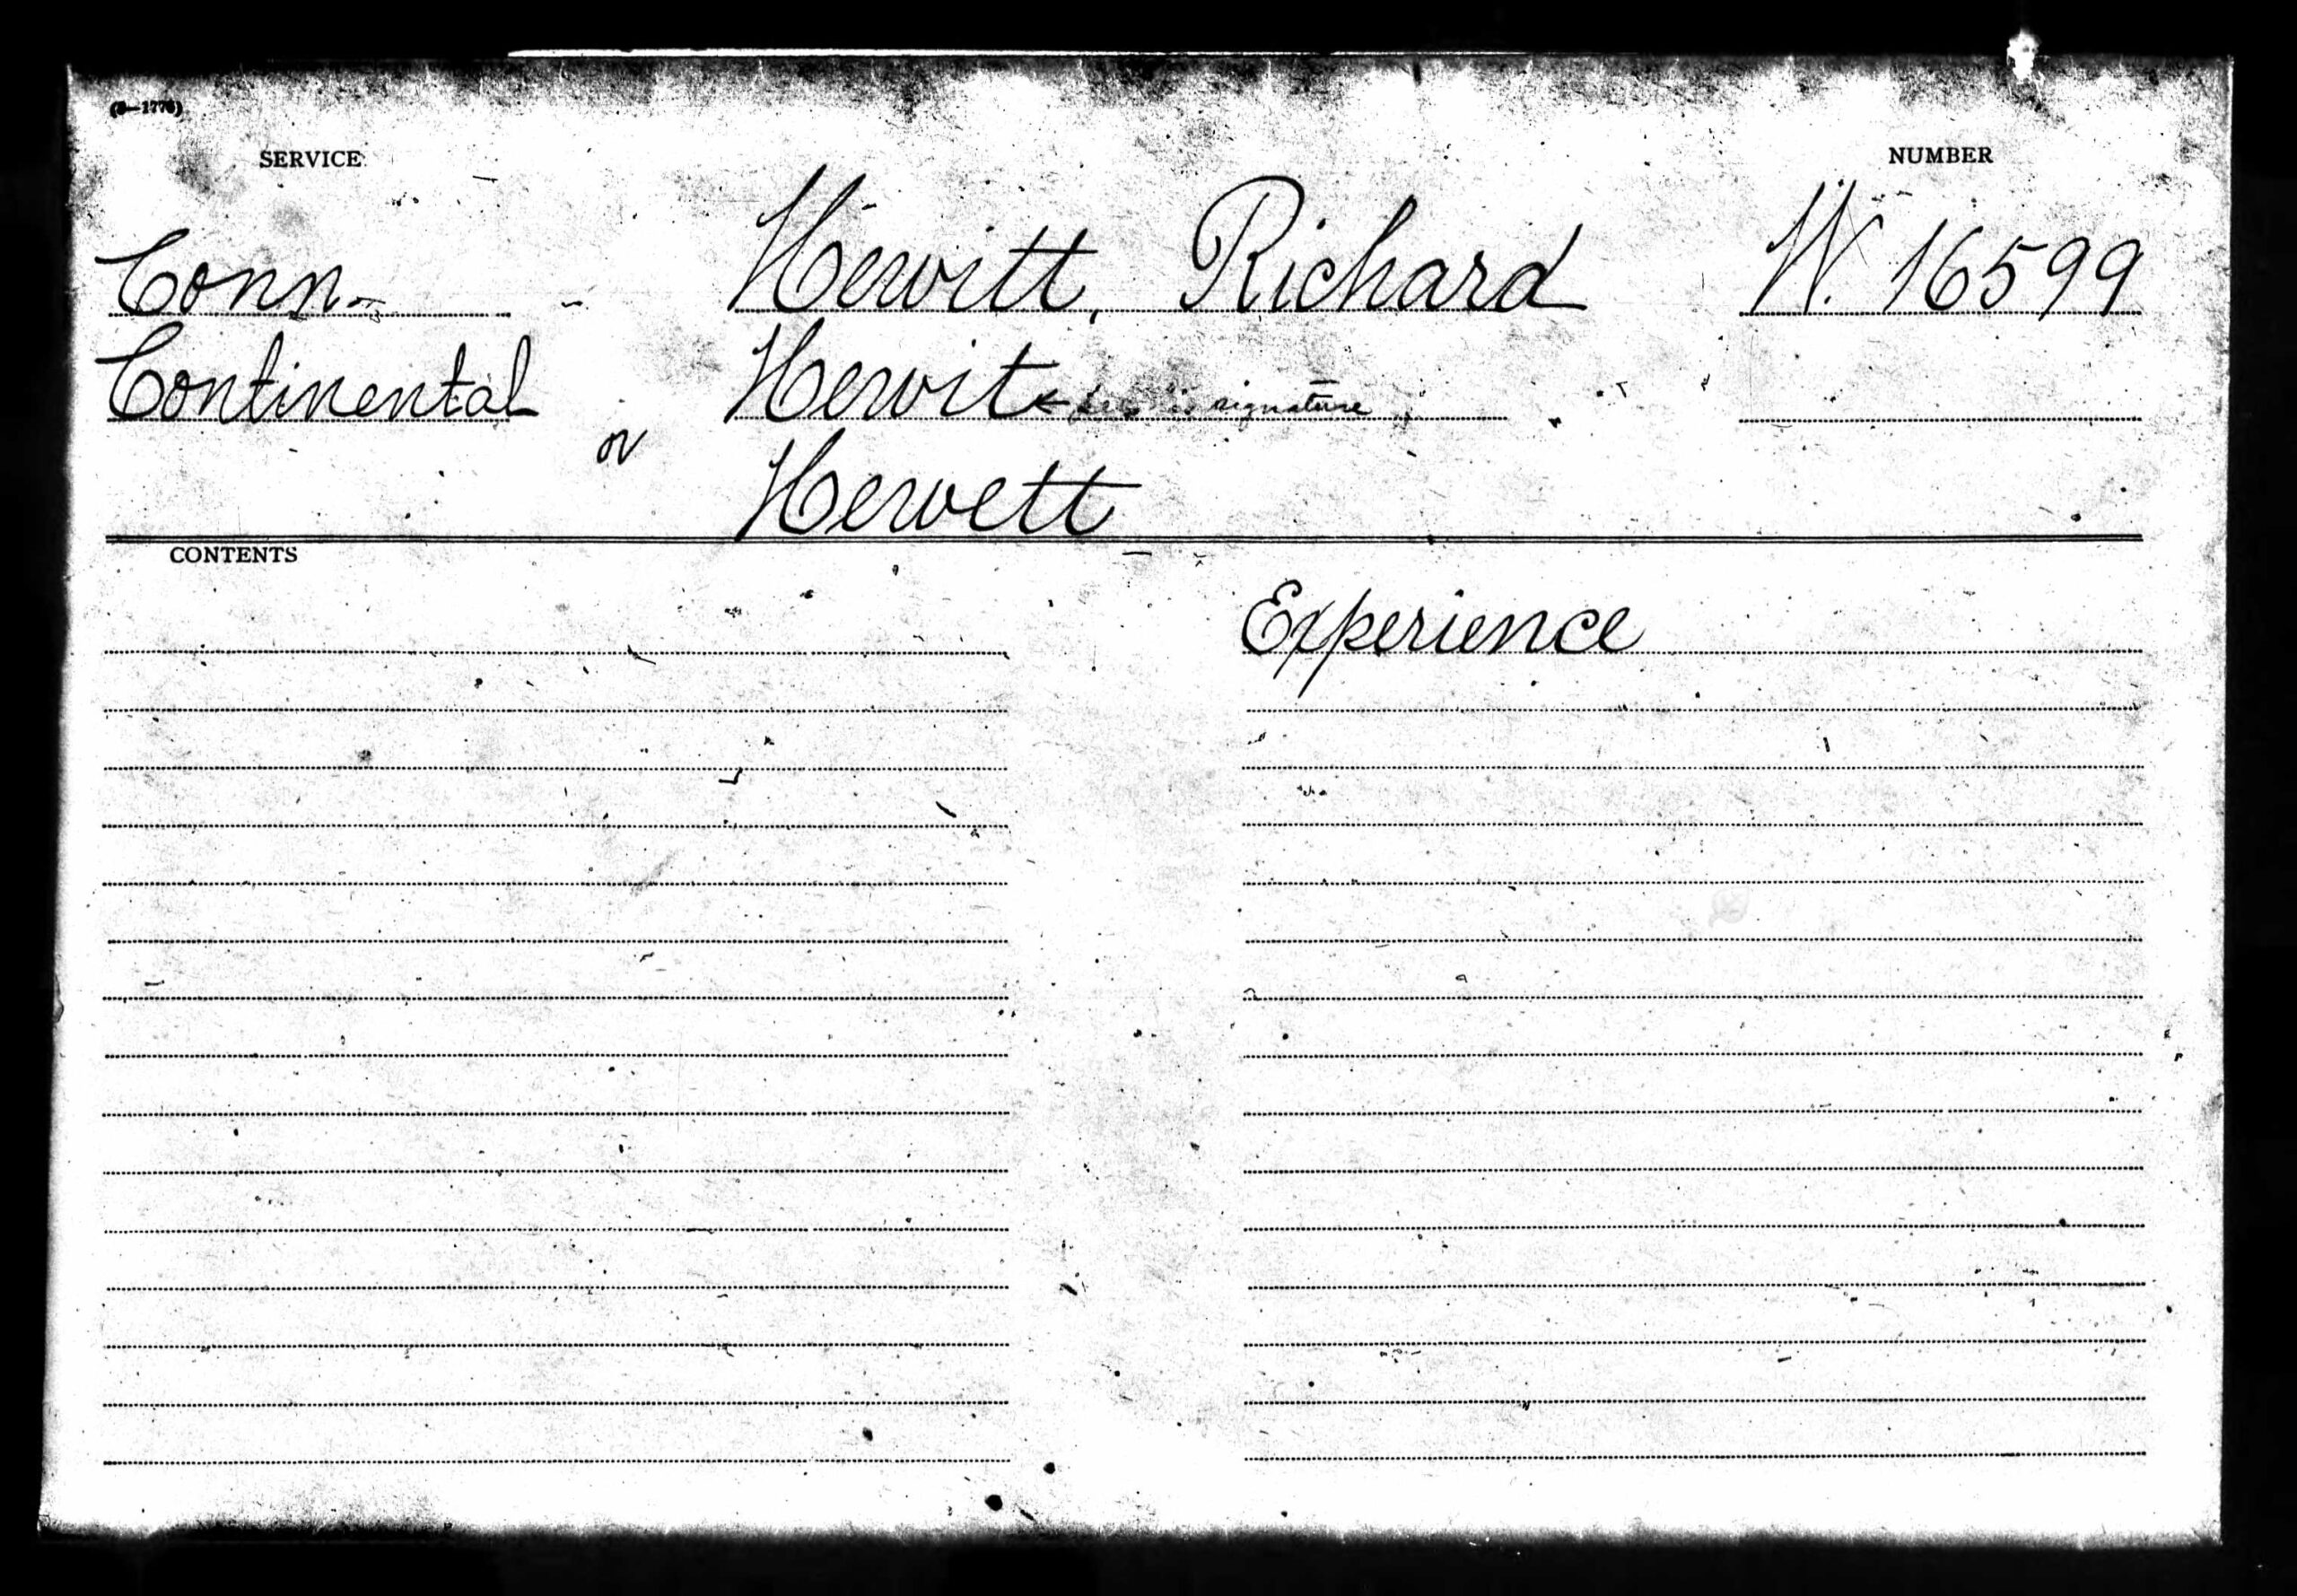 SERVICE NUMBER
Conn. Hewitt, Richard W. 16599
Continental Hewit signature
or
Hewett
CONTENTS
Experience